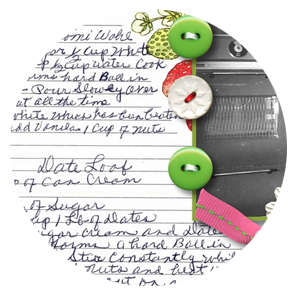 omi Wohl
or y Cup White
½ Cup water Cook
hard Ball in
- Pour Slowly over
at all the time
White which has bun beaten
add Vanila 1 Cup of nuts
Date Loaf
of Can Cream
of Sugar
up 1 Lb of Dates
ugar Cream and Dates
Forms a hard Ball in
Stir Constantly while
Nuts and